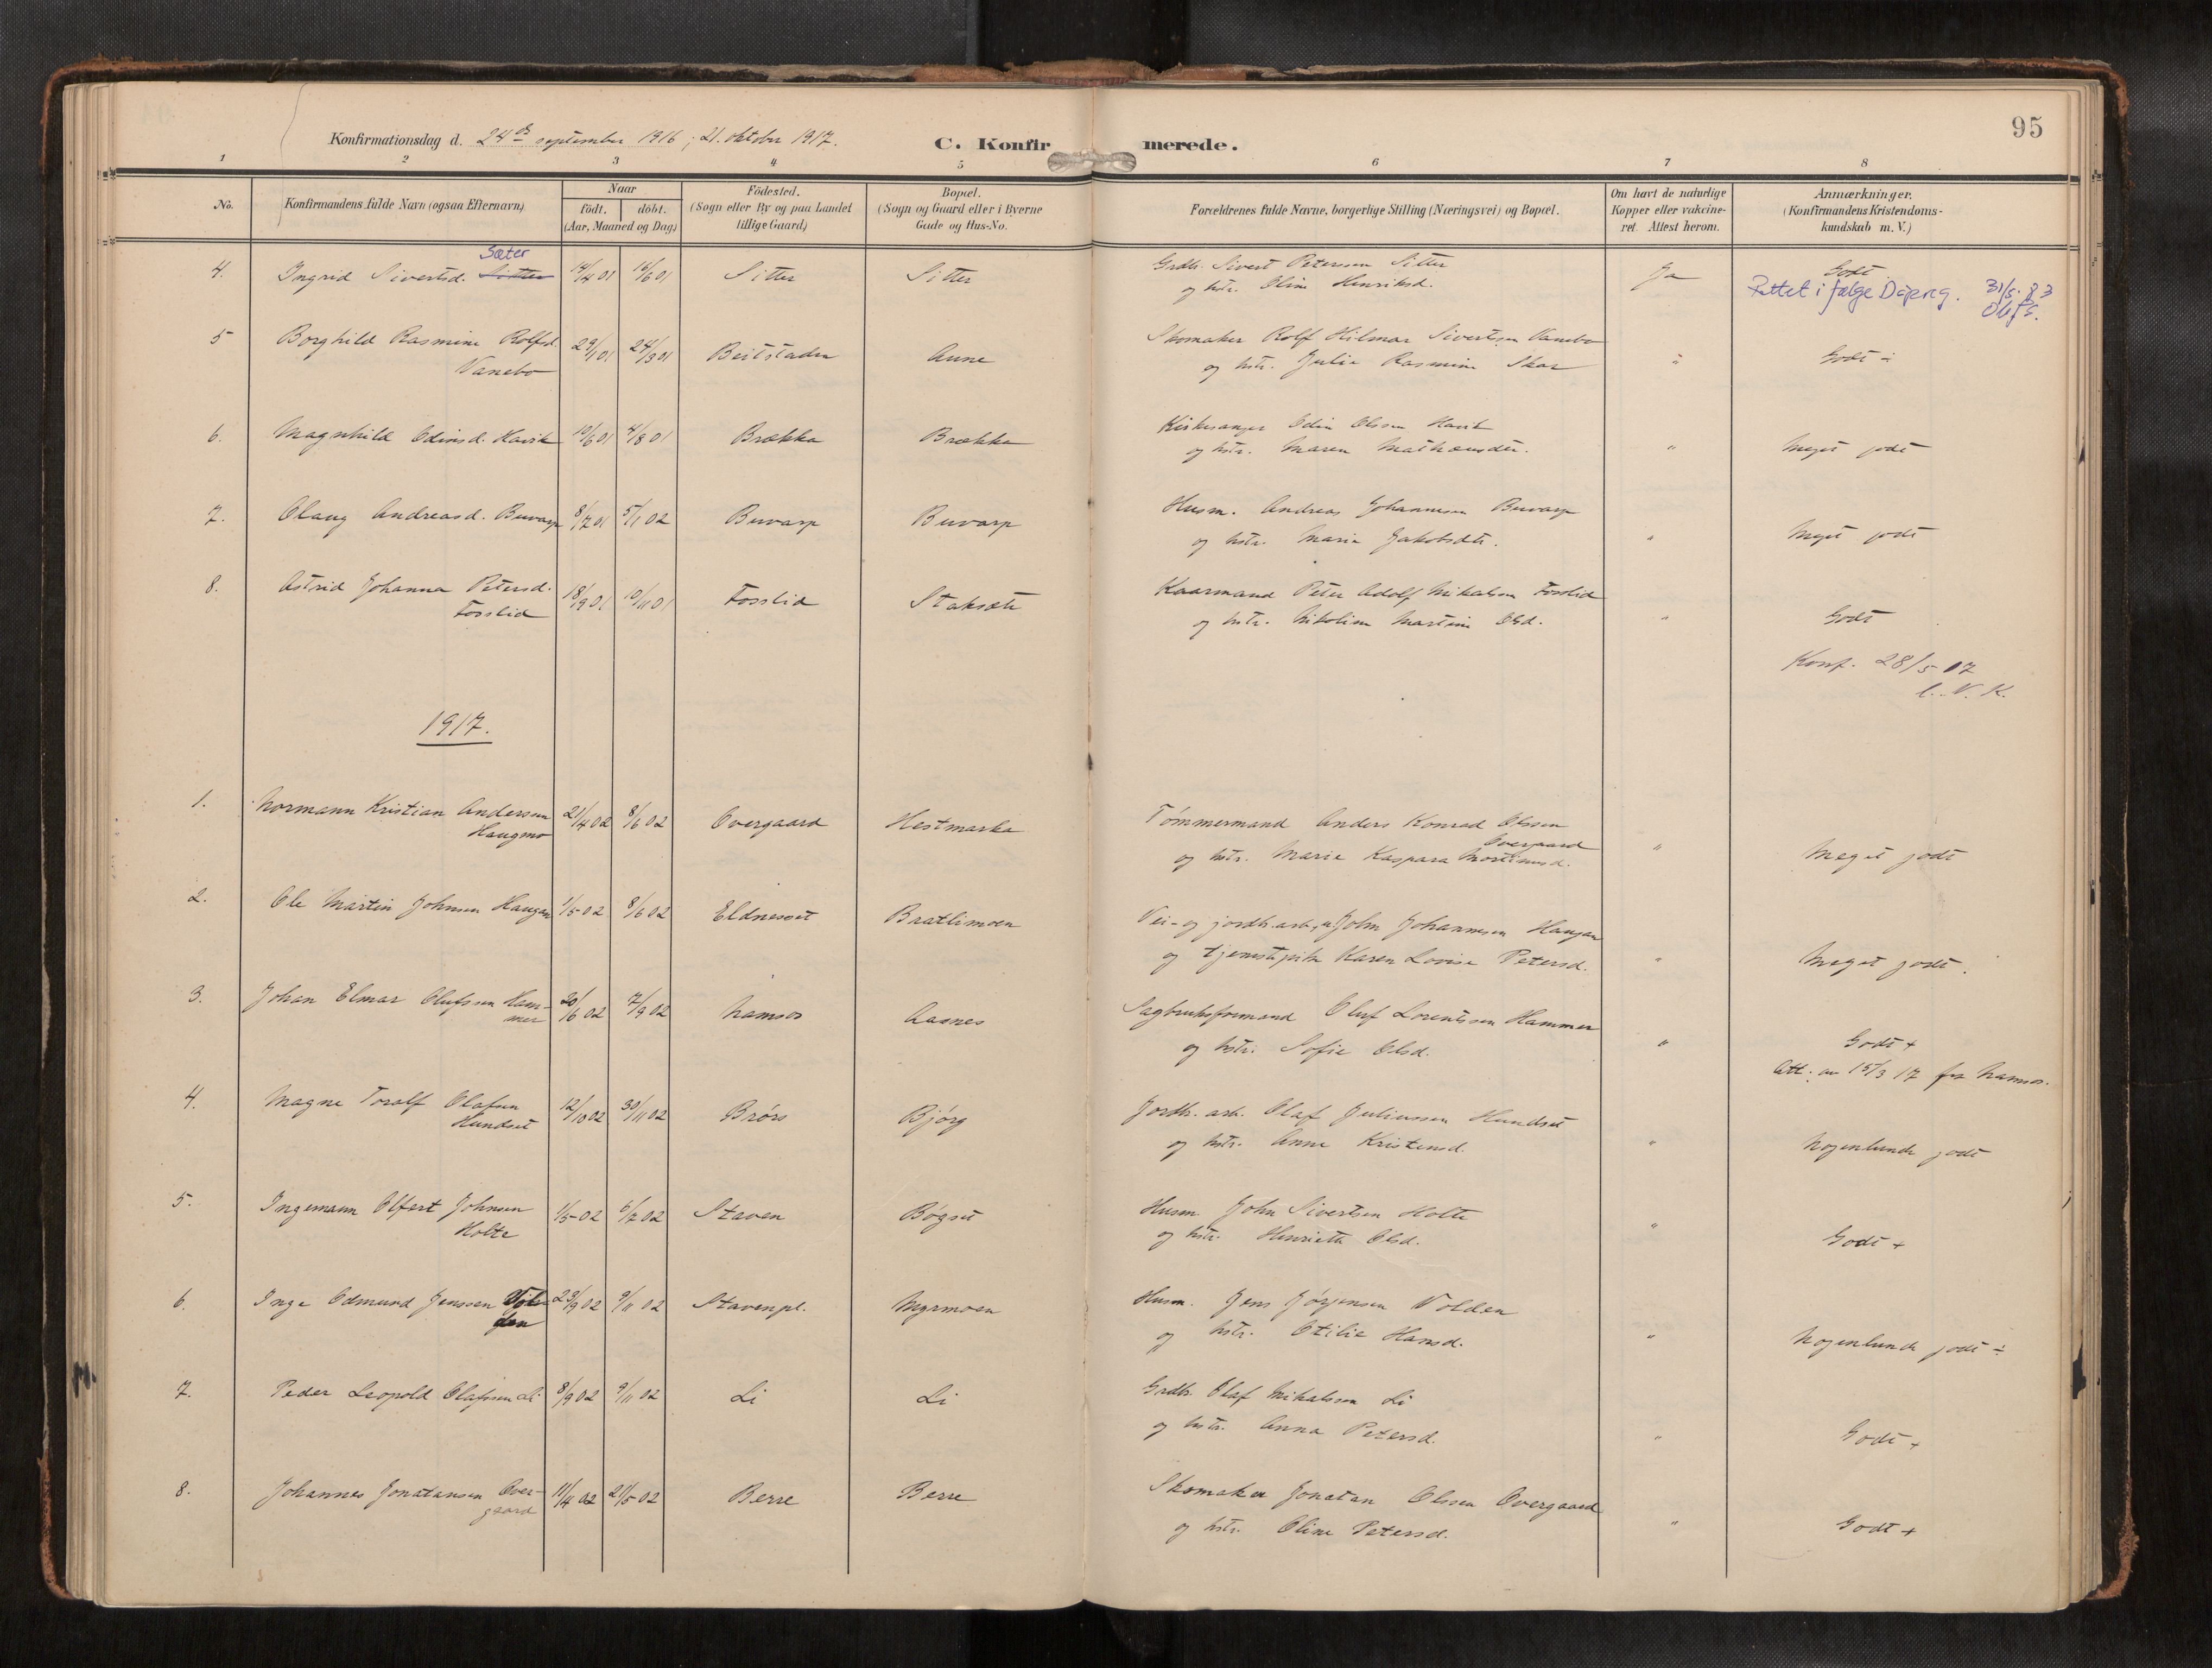 95
Konfirmationsdag d. 24de september 1916; 21. oktober 1917.
C. Konfirmerede.
1 2 3 4 5 6 7 8
No.
Konfirmandens fulde Navn (ogsaa Efternavn)
Naar
födt. döbt.
(Aar, Maaned og Dag)
Födested.
(Sogn eller By og paa Landet
tillige Gaard)
Bopæl.
(Sogn og Gaard eller i Byerne
Gade og Hus-No.
Forældrenes fulde Navne, borgerlige Stilling (Næringsvei) og Bopæl.
Om havt de naturlige
Kopper eller vakcine-
ret. Attest herom.
Anmærkninger.
(Konfirmandens Kristendoms-
kundskab m. V.)
Sæter
4. Ingrid Sivertsd. Sitter 14/4 01 16/6 01 Sitter Sitter Grdbr. Sivert Petersen Sitter Ja Godt
og hstr. Oline Henriksd. Rettet i følge Dåpreg. 31/5 83
5 Borghild Rasmine Rolfsd. 29/1 01 24/3 01 Beitstaden Aune Skomaker Rolf Hilmar Sivertsen Vanebo
Vanebo og hstr. Julie Rasmine Skar " Godt ÷
6. Magnhild Odinsd. Havik 10/6 01 4/8 01 Brækka Brækka Kirkesanger Odin Olssen Havik
og hstr. Maren Mathæusdtr. " Meget godt
7. Olaug Andreasd. Buvarp 8/7 01 5/1 02 Buvarp Buvarp Husm. Andreas Johannesen Buvarp
og hstr. Marie Jakobsdtr. " Meget godt
8. Astrid Johanna Petersd. 18/9 01 10/11 01 Fosslid Staksæte Kaarmand Peter Adolf Mikalsen Fosslid
Fosslid og hstr. Nikoline Martine Olsd. " Godt
Konf. 28/5 07
1917.
1. Normann Kristian Andersen 21/4 02 8/6 02 Overgaard Hestmarka Tømmermand Anders Konrad Olssen
Haugmo Overgaard
og hstr. Marie Kaspara Mortensd. " Meget godt
2. Ole Martin Johnsen Haugan 1/5 02 8/6 02 Eldnesset Bratlimoen Vei- og jordb.arb., u. John Johannesen Haugan
og tjenestpike Karen Lovise Petersd. " Meget godt.
3. Johan Elmar Olufssen Ham- 20/6 02 7/9 02 Namsos Aasnes Sagbruksformand Oluf Lorentssen Hammer
mer og hstr. Sofie Olsd. " Godt +
Att. av 15/3 17 fra Namsos.
4. Magne Toralf Olafsen 12/10 02 30/11 02 Brörs Bjørg Jordb. arb. Olaf Juliussen Hundset
Hundset og hstr. Anne Kristensd. " Nogenlunde godt
5. Ingemann Olfert Johnsen 1/5 02 6/7 02 Staven Bøgset Husm. John Sivertsen Holte
Holte og hstr. Henriette Olsd. " Godt +
6. Inge Edmund Jenssen Vol- 23/9 02 9/11 02 Stavenpl. Myrmoen Husm. Jens Jørgensen Volden
den og hstr. Otilie Hansd. " Nogenlunde godt ÷
7. Peder Leopold Olafssen Li 8/9 02 9/11 02 Li Li Grdbr. Olaf Mikalssen Li
og hstr. Anna Petersd. " Godt +
8. Johannes Jonatansen Over- 11/4 02 21/5 02 Berre Berre Skomaker Jonatan Olssen Overgaard
gaard og hstr. Oline Petersd. " Godt +